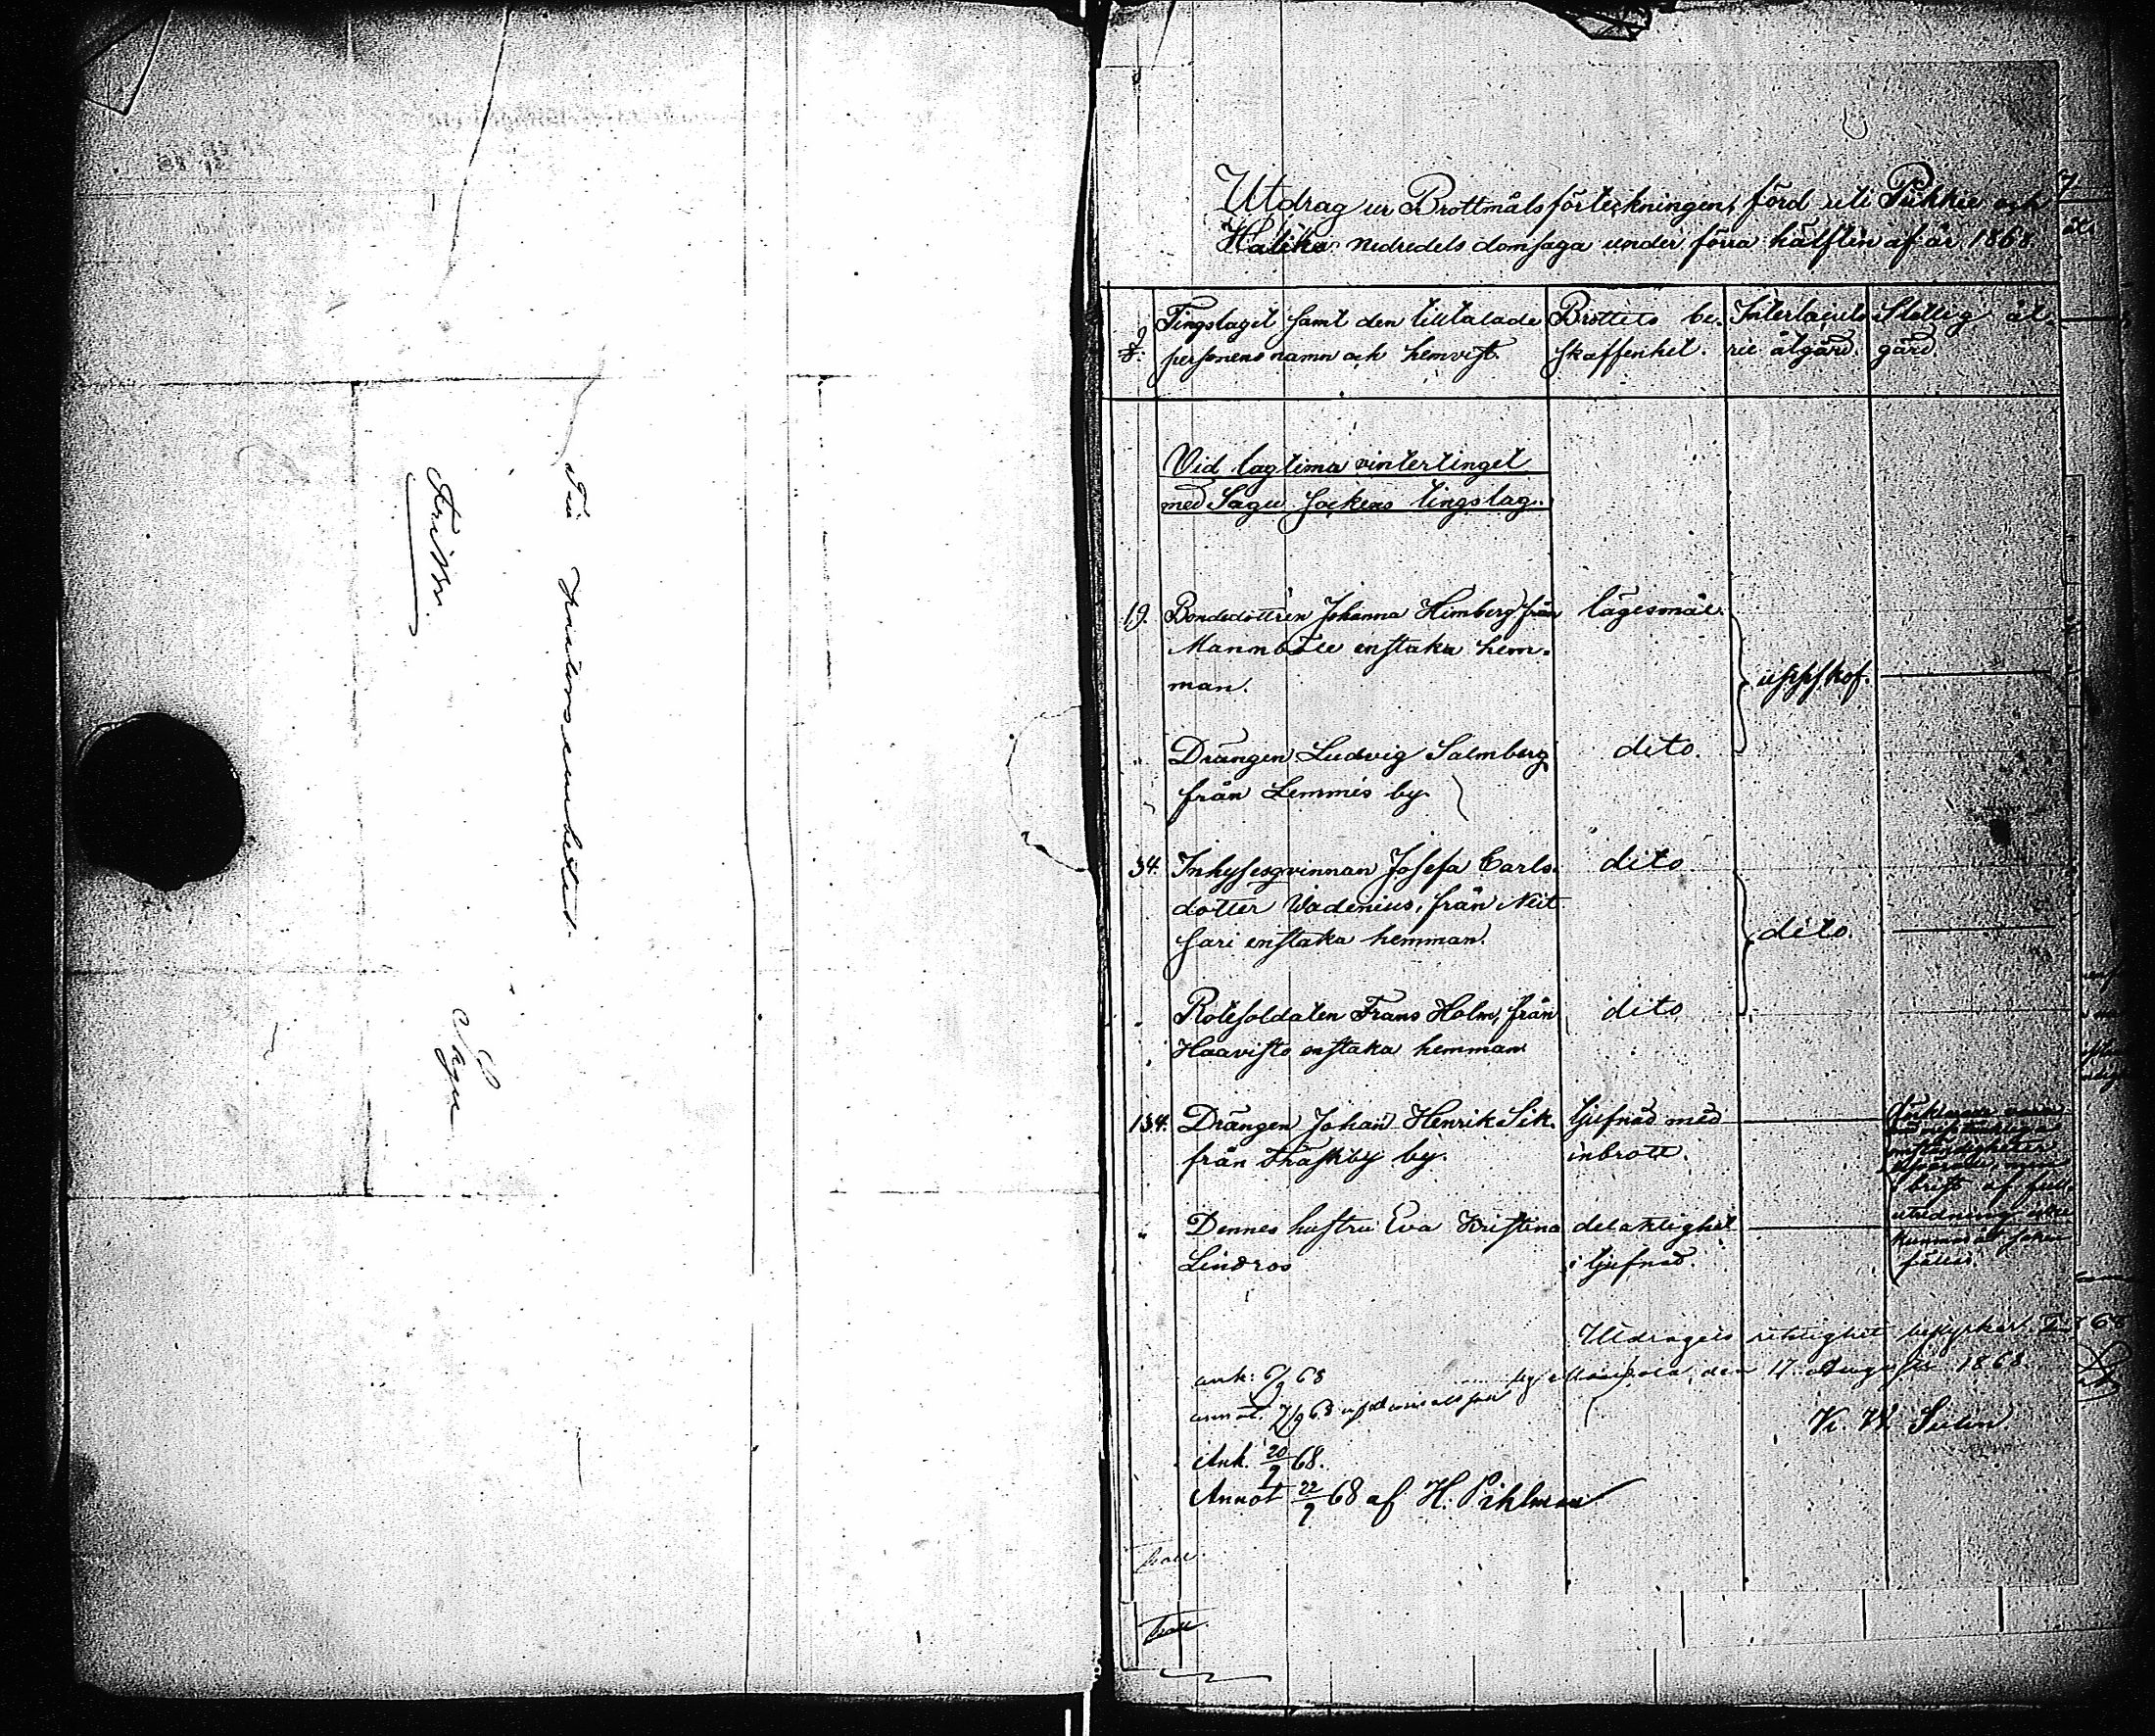 Till pastorsembetet
Fribr.
Sagu
Utdrag ur Brottmålsförteckningen, förd uti Pikkie och
Haliko nedredels domsaga under förra hälften af år 1868.
Tingslaget samt den tilltalade
personens namn och hemvist.
Brottets be-
skaffenhet.
Interlocuto-
rie åtgärd.
Slutlig åt-
gärd.
Vid lagtima vintertinget
med Sagu sockens tingslag.
19. Bondedottren Johanna Himberg från
enstaka hem-
man.
lägesmål.
uppskof.
„ Drängen Ludvig Salmberg
från Lemmis by.
dito.
34. Inhysesqvinnan Josefa Carls-
dotter Wadenius, från Neit
sari enstaka hemman.
dito
dito.
„ Rotesoldaten Frans Holm, från
Haavisto enstaka hemman
dito
134. Drängen Johan Henrik Sik.
från Träskby by.
tjufnad med
inbrott.
omständigheter
brist af full
utredning icke
kunnat till saken
fällas.
„ Dennes hustru Eva Kristina
Lindros
delaktighet
i tjufnad.
Utdragets riktighet bestyrker
den 17 Augusti 1868.
K. W. Selin
ank: 6/9 68
annot. 7/9 68
Ank. 20/9 68.
Annot 22/9 68 af H. Pihlman